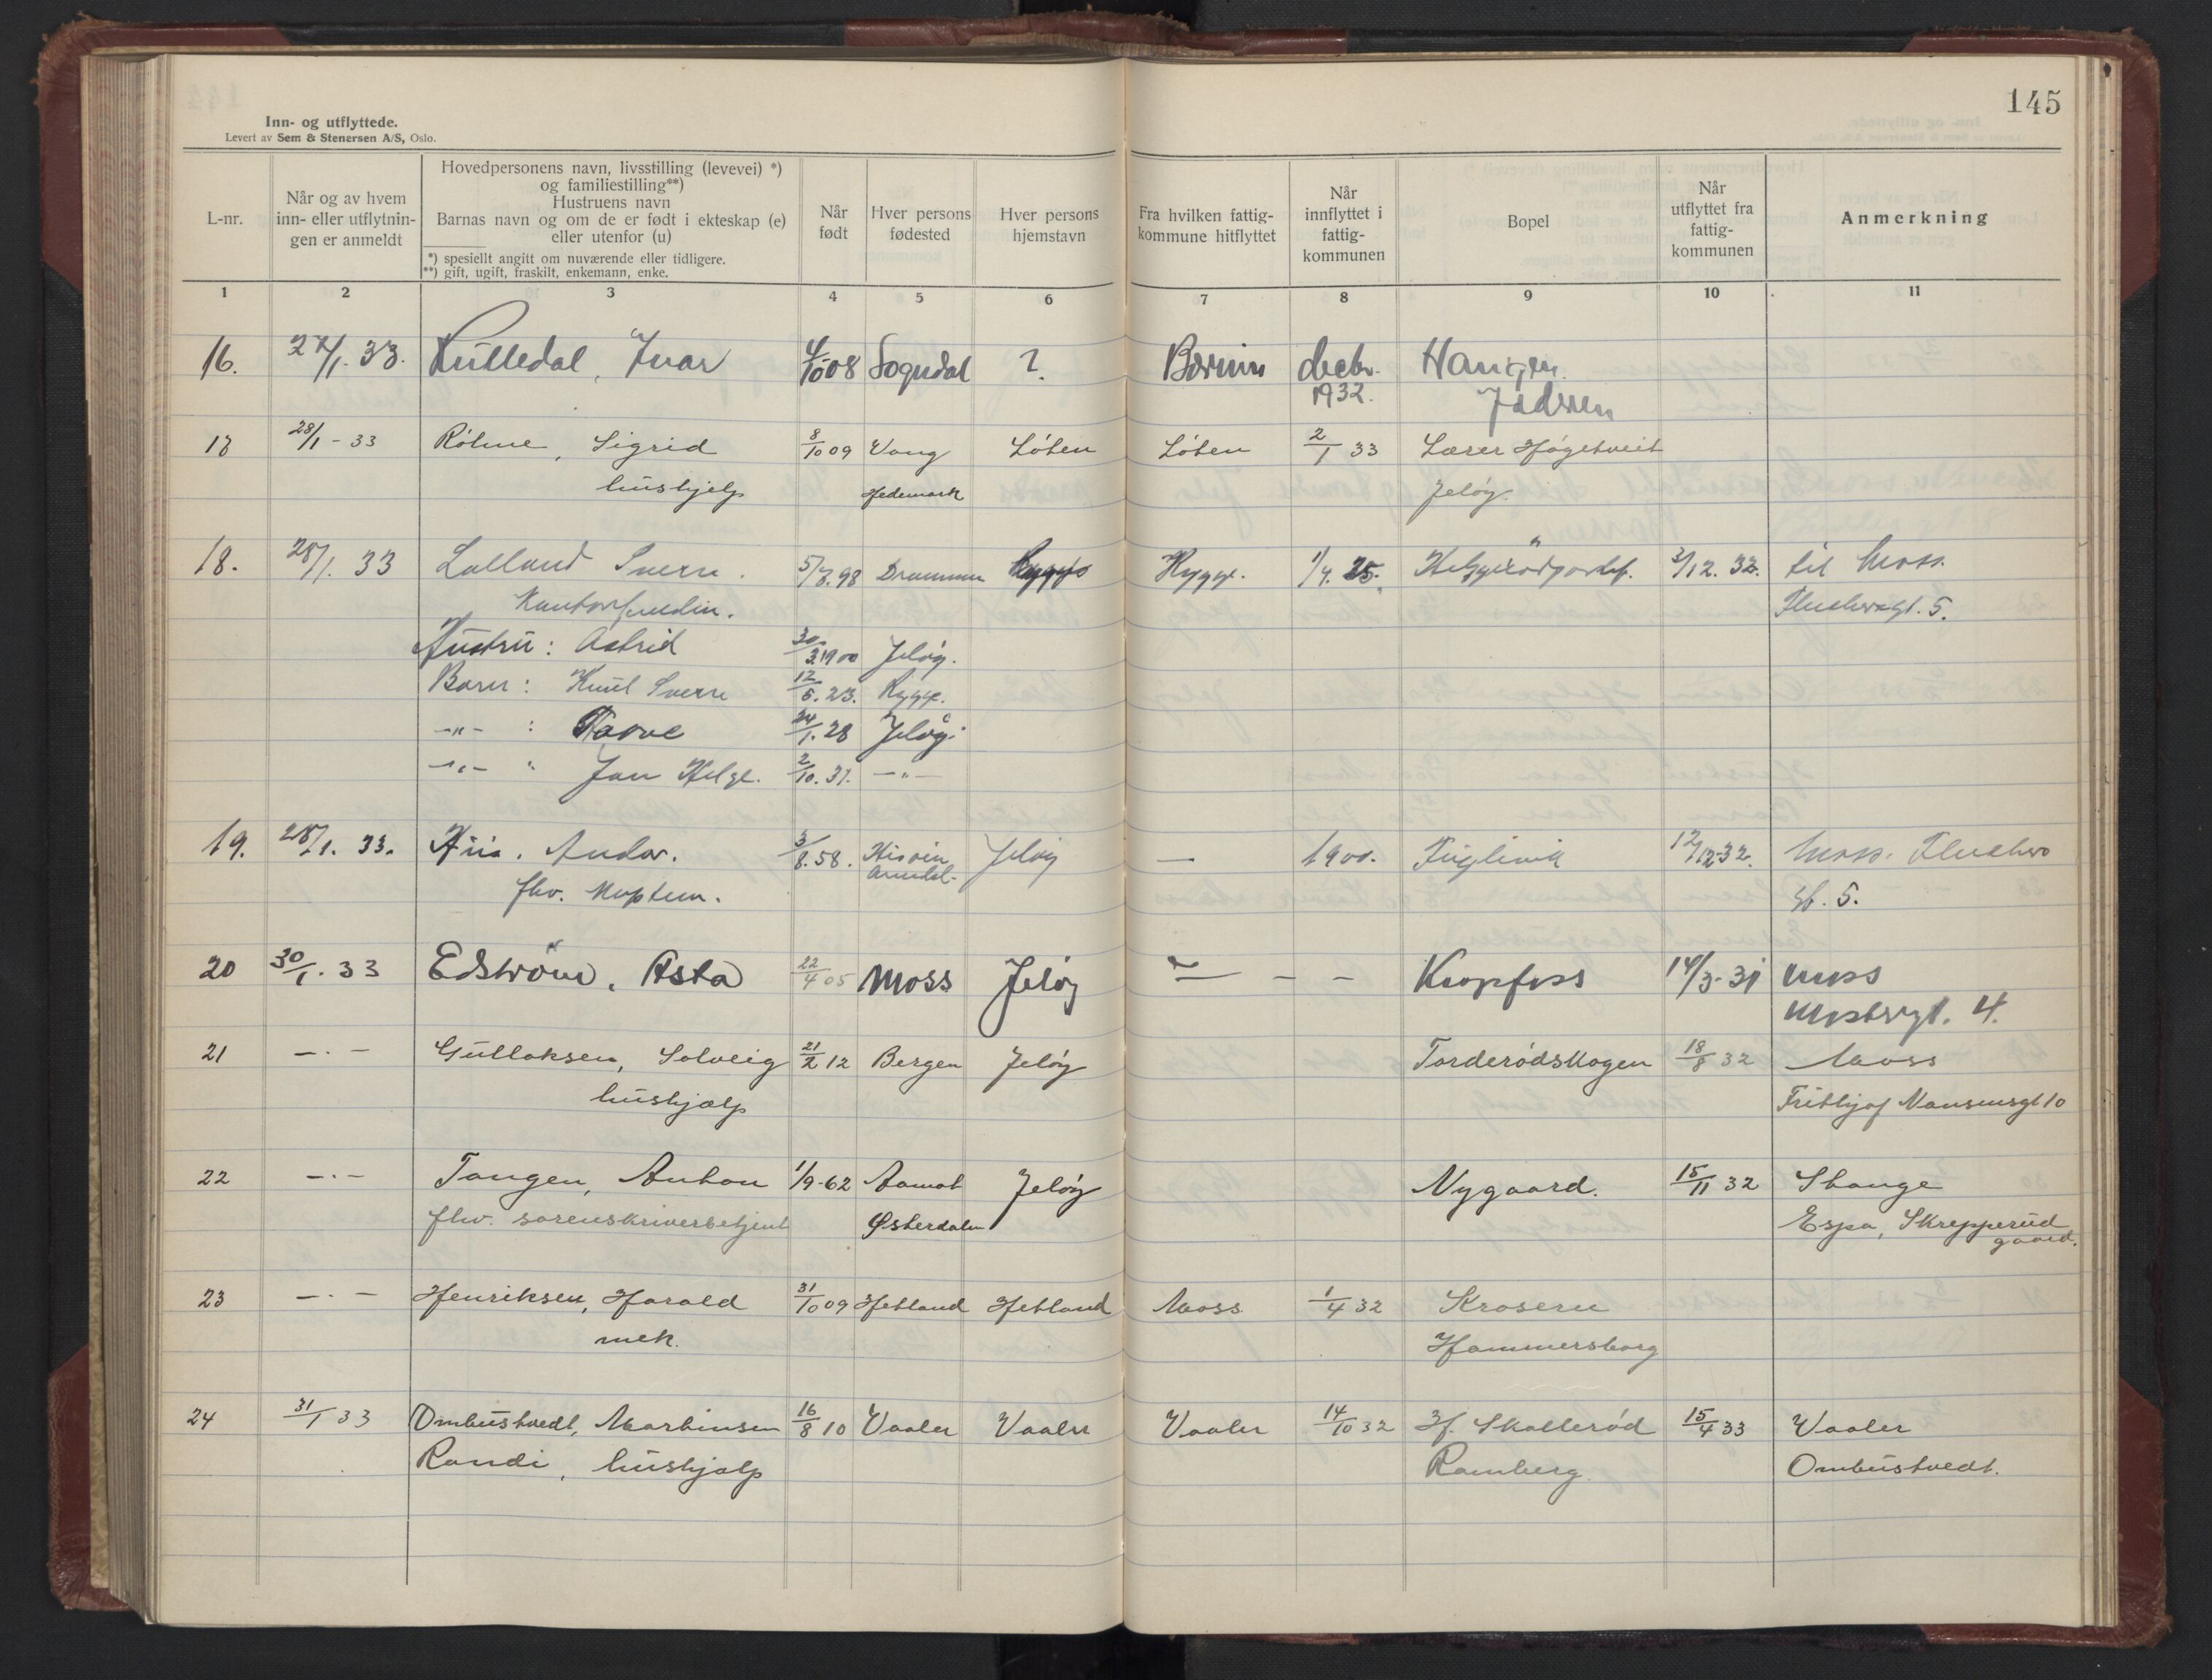 145
Inn- og utflyttede.
Levert av Sem & Stenersen A/S, Oslo.
L-nr.
Når og av hvem
inn- eller utflytnin-
gen er anmeldt
Hovedpersonens navn, livsstilling (levevei) *)
og familiestilling**)
Hustruens navn
Barnas navn og om de er født i ekteskap (e)
eller utenfor (u)
*) spesiellt angitt om nuværende eller tidligere.
**) gift, ugift, fraskilt, enkemann, enke.
Når
født
Hver persons
fødested
Hver persons
hjemstavn
Fra hvilken fattig-
kommune hitflyttet
Når
innflyttet i
fattig-
kommunen
Bopel
Når
utflyttet fra
fattig-
kommunen
Anmerkning
1 2 3 4 5 6 7 8 9 10 11
16. 27/1. 33. Kulledal, Ivar 4/10 08 Sogndal ? Bærum decbr.
1932.
17 28/1 - 33 Röhne, Sigrid 8/10 09 Vang Löten Löten 2/1 33 Lærer Högetveit
hushjelp Hedemark Jelöy.
18. 28/1. 33 Lolland Sverre. 5/8.98 Drammen Rygge Rygge. 1/4. 25. 3/12. 32. til Moss.
5.
Hustru: Astrid 30/3 1900 Jelöy.
Barn: Knut Sverre 12/5. 23. Rygge.
-"- : 24/1. 28 Jelöy.
-"- " Jan Helge. 2/10. 31. -"-
19. 28/1. 33. 3/8. 58. Hisøin Jelöy — 1900. Fuglevik 12/12 32. Moss.
Arendal.
fhv. gt. 5.
20 30/1. 33 Edström, Asta 22/4 05 Moss Jelöy — - - Kropfoss 14/3-31 Moss
4.
21 -.- Gullaksen, Solveig 21/2 12 Bergen Jelöy Torderödskogen 18/8 32 Moss
hushjælp Frithjof Nansensgt 10
22 -.- Tangen, Anton 1/9-62 Aamot Jelöy Nygaard. 15/11 32 Stange
fhv. sorenskriverbetjent Østerdalen Espa, Skrepperud
gaard.
23 -.- Henriksen, Harald 31/10 09 Hetland Hetland Moss 1/4 32 Krosern
mek. Hammersborg
24 31/1 33 Ombustvedt, Martinsen 16/8 10 Vaaler Vaaler Vaaler 14/10 32 Hf. Skallerød 15/4 33 Vaaler
Randi, hushjælp Ramberg. Ombustvedt.